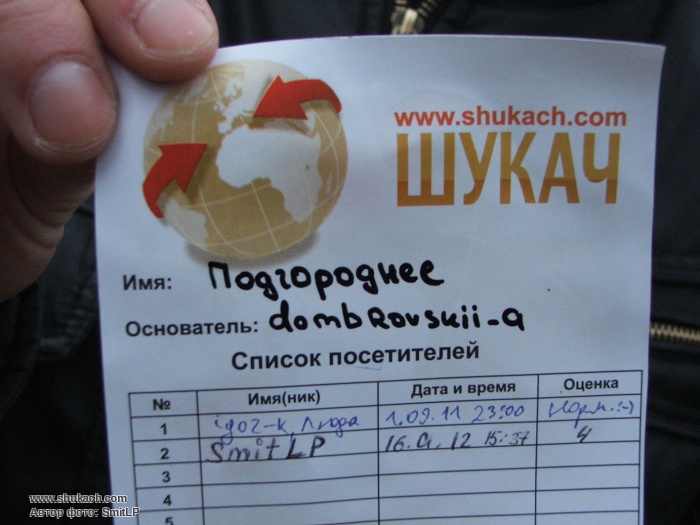 www.shukach.com
ШУКАЧ
Имя: Подгороднее
Основатель: dombrovskii-a
Список посетителей
№ Имя(ник) Дата и время Оценка
1 igor-k, Люда 1.09.11 23:00 Норм. :-)
2 SmitLP 16.9.12 15:37 4
3
4
5
www.shukach.com
Автор фото: SmitLP